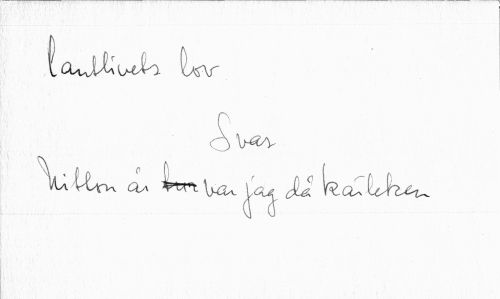 lantlivets lov
Svar
Nitton år var jag då kärleken